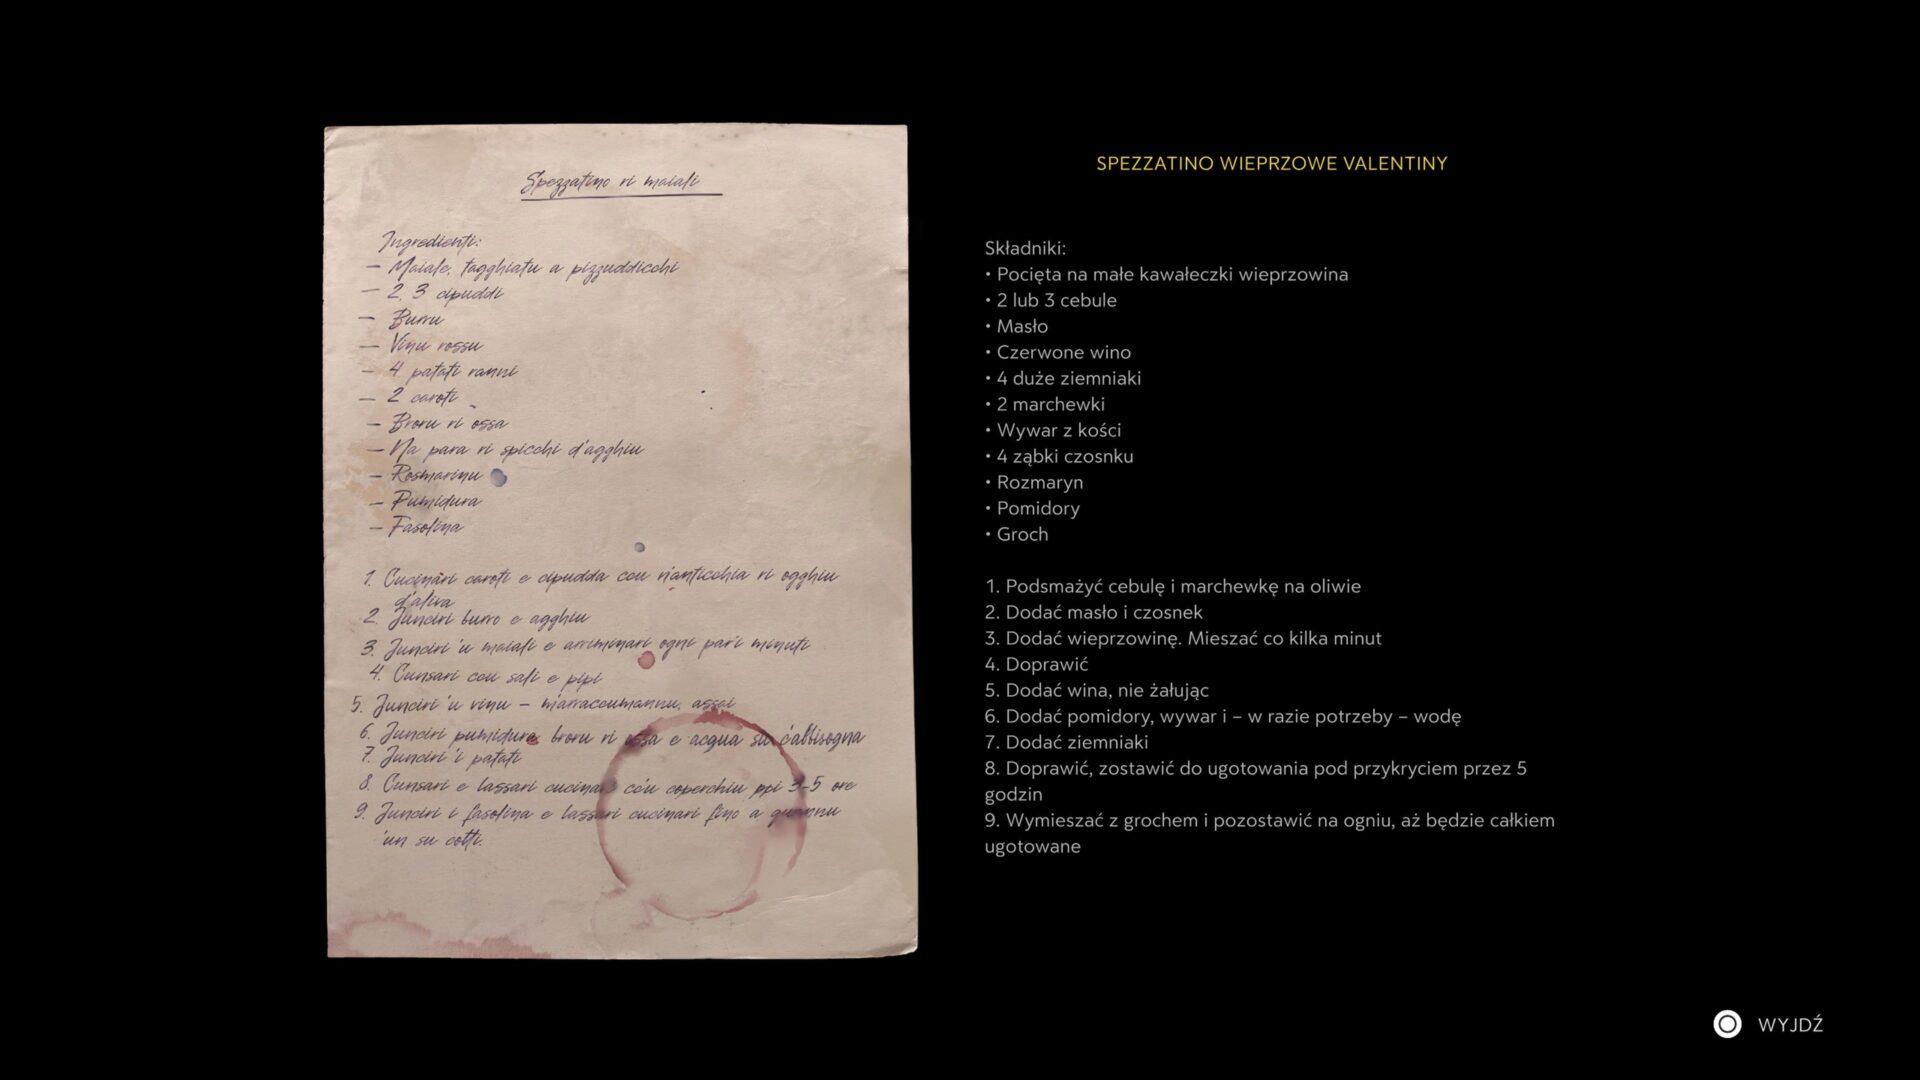 Spezzatino ri maiali
Ingredienti:
— Maiale, tagghiatu a pizzuddicchi
— 2, 3 cipuddi
— Burru
— Vinu rossu
— 4 patati ranni
— 2 caroti
— Broru ri ossa
— Na para ri spicchi d'agghiu
— Rosmarinu
— Pumidura
— Fasolina
1. Cucinari caroti e cipudda cou n'anticchia ri ogghiu
d'aliva
2. Junciri burro e agghiu
3. Junciri 'u maiali e arriminari ogni par'i minuti
4. Cunsari cou sali e pipi
5. Junciri 'u vinu – m'arraccumannu, assai
6. Junciri pumidura, broru ri ossa e acqua su c'abbisogna
7. Junciri 'i patati
8. Cunsari e lassari cucinari cóu coperchiu ppi 3-5 ore
9. Junciri i fasolina e lassari cucinari fino a quannu
'un su cotti.
SPEZZATINO WIEPRZOWE VALENTINY
Składniki:
• Pocięta na małe kawałeczki wieprzowina
• 2 lub 3 cebule
• Masło
• Czerwone wino
• 4 duże ziemniaki
• 2 marchewki
• Wywar z kości
• 4 ząbki czosnku
• Rozmaryn
• Pomidory
• Groch
1. Podsmażyć cebulę i marchewkę na oliwie
2. Dodać masło i czosnek
3. Dodać wieprzowinę. Mieszać co kilka minut
4. Doprawić
5. Dodać wina, nie żałując
6. Dodać pomidory, wywar i – w razie potrzeby – wodę
7. Dodać ziemniaki
8. Doprawić, zostawić do ugotowania pod przykryciem przez 5
godzin
9. Wymieszać z grochem i pozostawić na ogniu, aż będzie całkiem
ugotowane
WYJDŹ